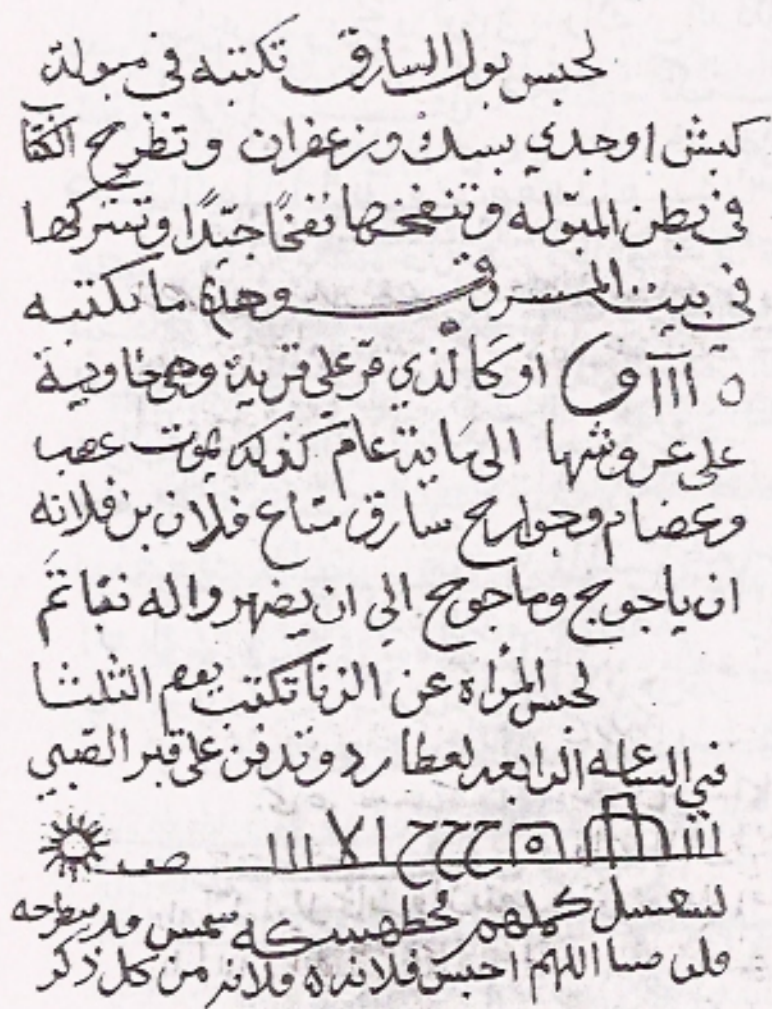 لحبس بول السارق تكتبه في مبولة
كبش اوجدي بسك وزعفران وتطرح الكتا
في بطن المبوله وتنفخها نفخًا جيّدًا وتتركها
في بيت المسروق وهذه ما تكتبه
ااا و اوكالّذي مرّ على قرية وهي خاوية
على عروشها الى ماية عام كذلك يموت عصب
وعضام وجوارح سارق متاع فلان بن فلانه
ان ياجوج وماجوج الي ان يضهر واله
لحبس المرأة عن الزنا تكتب يوم الثلثا
في الساعه الرابعه لعطارد وتدفن على قبر الصبي
ااا ححح ااا
اللهم احبس فلانه فلانه من كل ذكر